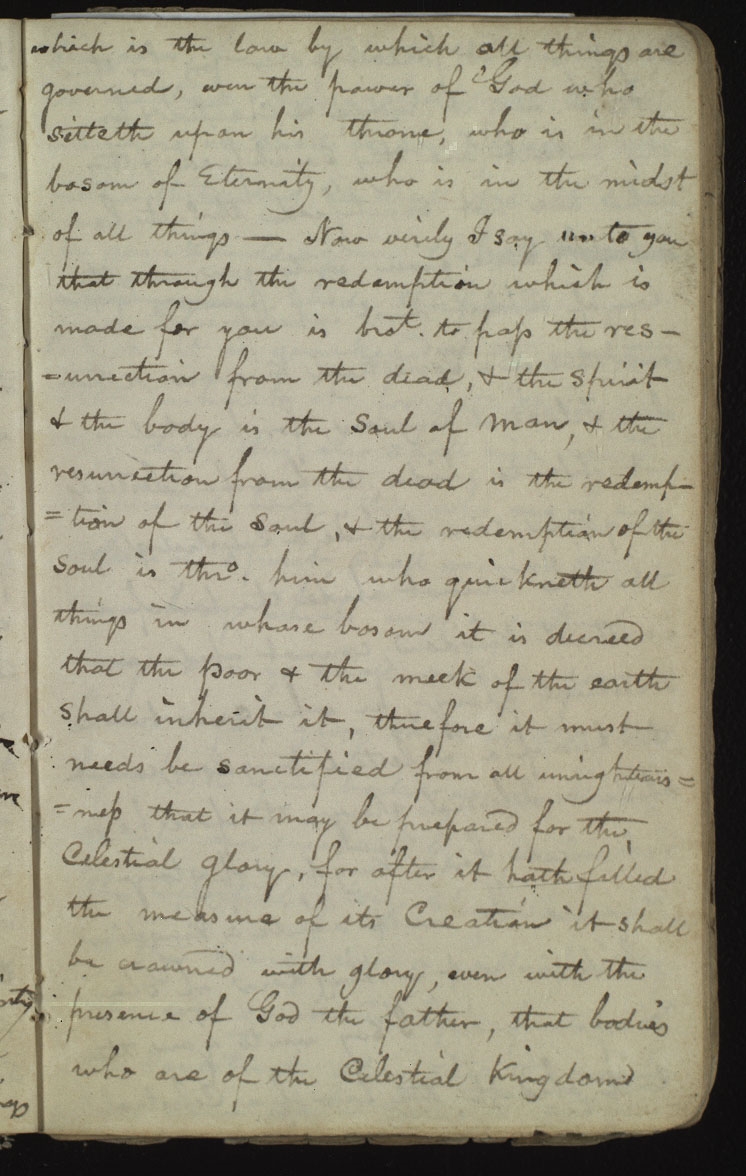 which is the law by which all things are
governed, even the power of God who
sitteth upon his throne, who is in the
bosom of Eternity, who is in the midst
of all things — Now verily I say unto you
that through the redemption which is
made for you is brot. to pass the res-
=urrection from the dead, & the spirit
& the body is the Soul of man, & the
resurrection from the dead is the redemp-
=tion of the Soul, & the redemption of the
Soul is thro. him who quickneth all
things in whose bosom it is decreed
that the poor & the meek of the earth
shall inherit it, therefore it must
needs be sanctified from all unrighteous=
=ness that it may be prepared for the
Celestial glory, for after it hath filled
the measure of its Creation it shall
be crowned with glory, even with the
presence of God the father, that bodies
who are of the Celestial Kingdom